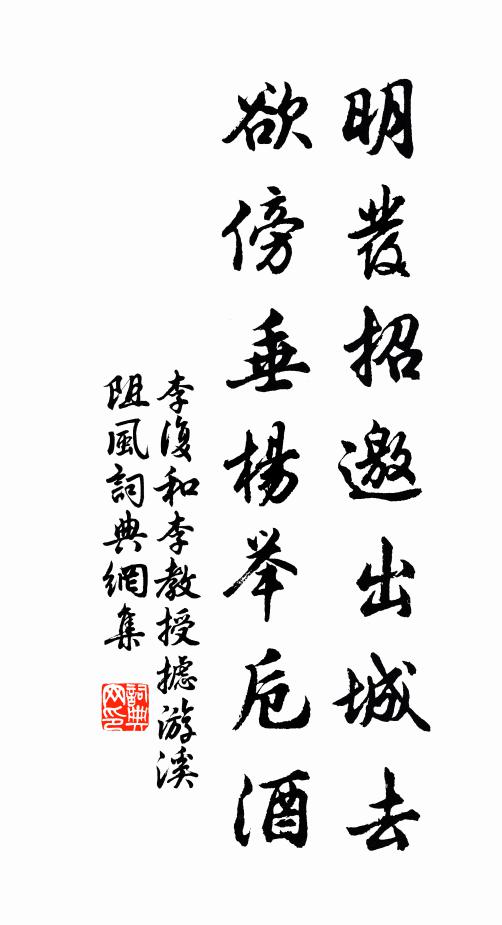 明發招邀出城去
欲傍垂楊举卮酒
李復和李教授摅游溪
阻風詞典網集
詞典
网印